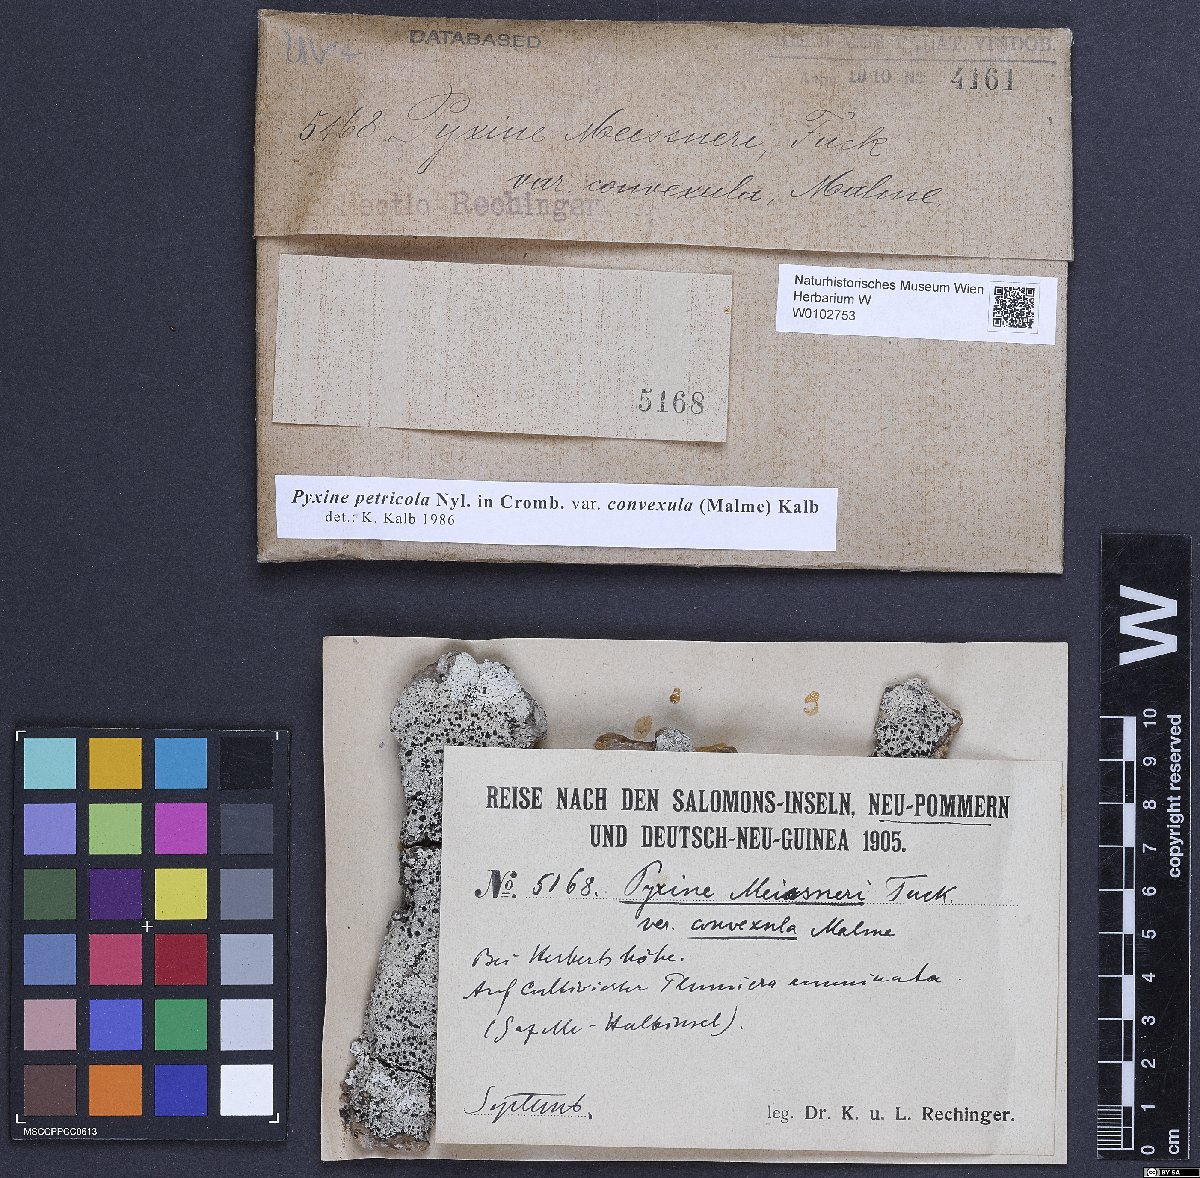 UV+
DATABASED
4161
5168 Pyxine Meissneri, Tuck
var convexula, Malme
Rechinger
Naturhistorisches Museum Wien
Herbarium W
W0102753
5168
Pyxine petricola Nyl. in Cromb. var. convexula (Malme) Kalb
det.: K. Kalb 1986
REISE NACH DEN SALOMONS-INSELN, NEU-POMMERN
UND DEUTSCH-NEU-GUINEA 1905.
No. 5168. Pyxine Meissneri Tuck
var. convexula Malme
Bei Herbertshöhe.
Auf cultivierter Plumiera
Septemb.
leg. Dr. K. u. L. Rechinger.
W
0 1 2 3 4 5 6 7 8 9 10
cm
copyright reserved
MSCCPPCC0613
cc BY SA